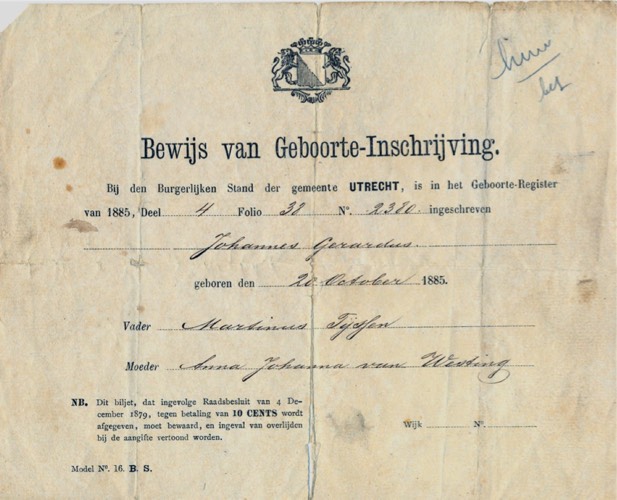 Bewijs van Geboorte-Inschrijving.
Bij den Burgerlijken Stand der gemeente UTRECHT, is in het Geboorte-Register
van 1885, Deel 4 Folio 38 Nº. 2380. ingeschreven
Johannes Gerardus.
geboren den 20 October 1885.
Vader Martinus Tijssen
Moeder Anna Johanna van Westing
NB. Dit biljet, dat ingevolge Raadsbesluit van 4 De-
cember 1879, tegen betaling van 10 CENTS wordt
afgegeven, moet bewaard, en ingeval van overlijden
bij de aangifte vertoond worden.
Wijk Nº.
Model Nº. 16. B. S.